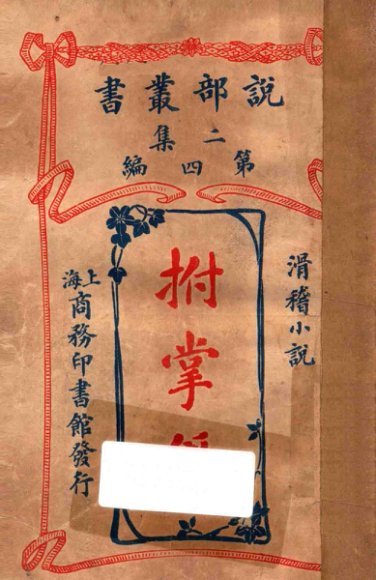 説部叢書
二集
第四編
滑稽小說
拊掌
上海商務印書館發行